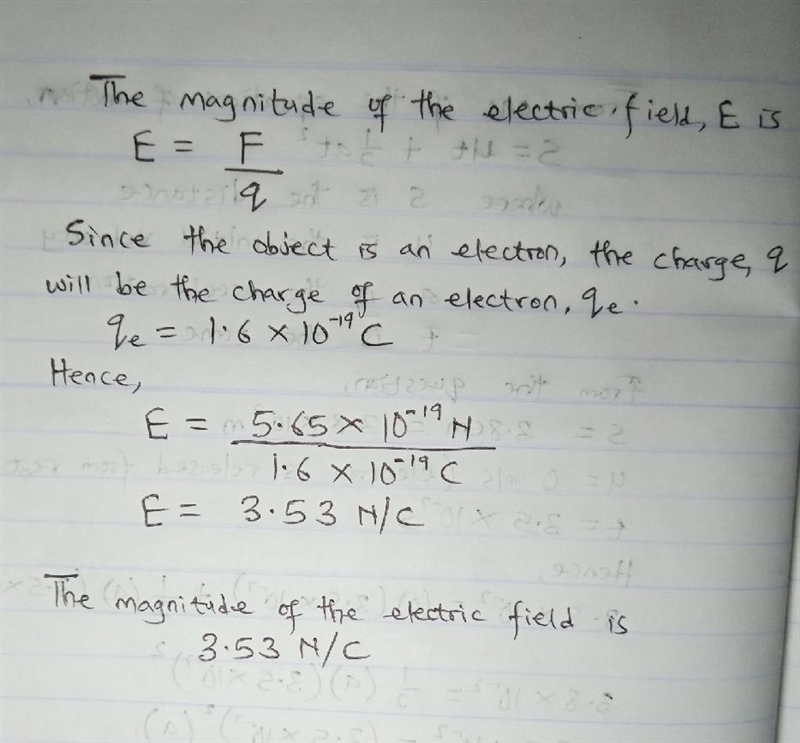 The magnitude of the electric field, E is
E = F
q
Since the object is an electron, the charge, q
will be the charge of an electron, qe.
qe = 1.6 × 10⁻¹⁹ C
Hence,
E = 5.65 × 10⁻¹⁹ N
1.6 × 10⁻¹⁹ C
E = 3.53 N/C
The magnitude of the electric field is
3.53 N/C